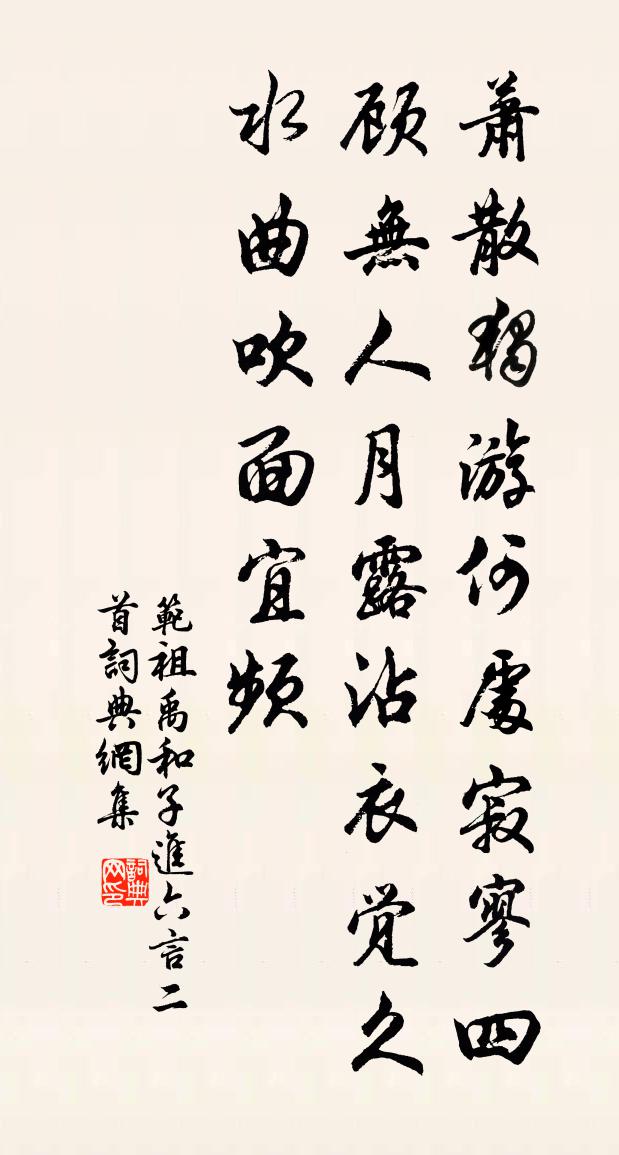 蕭散獨游何處寂寥四
顧無人月露沾衣觉久
水曲吹面宜頻
範祖禹和子進六言二
首詞典網集
詞典
网印